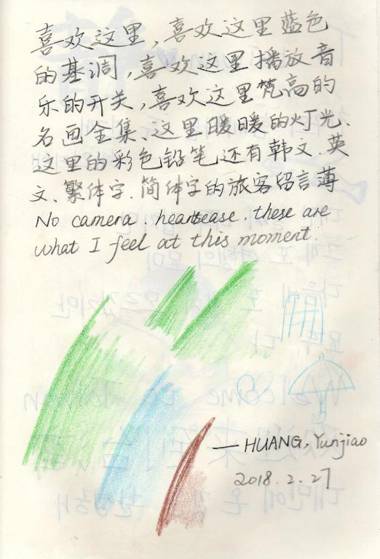 喜欢这里,喜欢这里蓝色
的基调,喜欢这里播放音
乐的开关,喜欢这里梵高的
名画全集、这里暖暖的灯光、
这里的彩色铅笔还有韩文、英
文、繁体字、简体字的旅客留言薄
No camera, heartease. these are
what I feel at this moment.
— HUANG, Yunjiao
2018.2.27